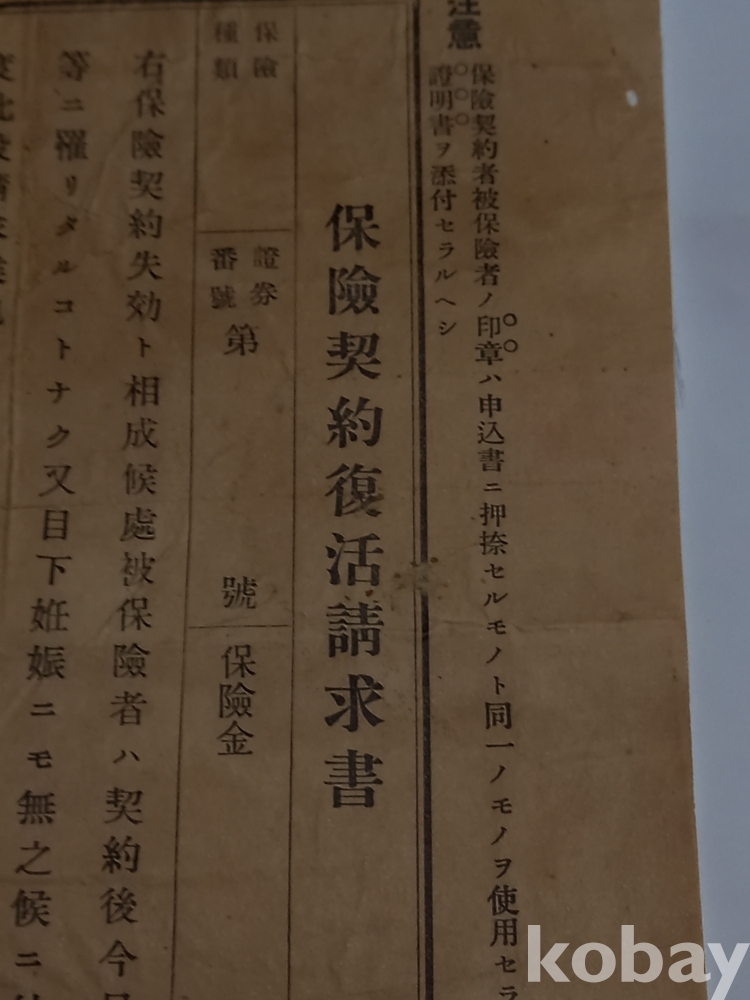 注意
保險契約者被保險者ノ印章ハ申込書ニ押捺セルモノト同一ノモノヲ使用セラ
證明書ヲ添付セラルヘシ
保險契約復活請求書
保險
種類
證券
番號
第
號
保險金
右保險契約失効ト相成候處被保險者ハ契約後今
等ニ罹リタルコトナク又目下姙娠ニモ無之候ニ
kobay